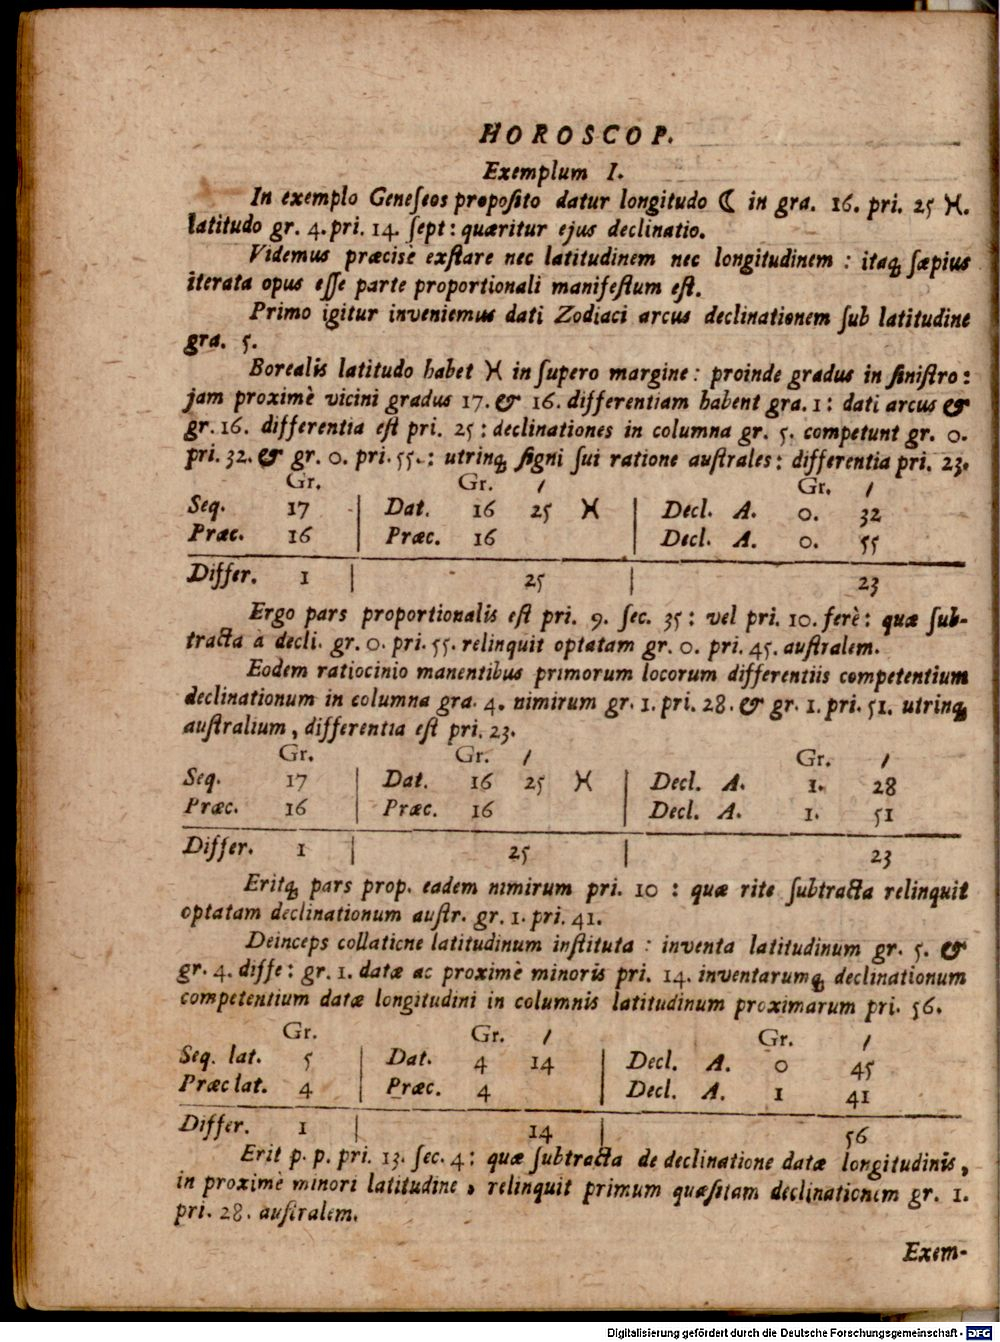 HOROSCOP.
Exemplum I.
In exemplo Geneſeos propoſito datur longitudo ☾ in gra. 16. pri. 25 ♓.
latitudo gr. 4. pri. 14. ſept: quæritur ejus declinatio.
Videmus præcisè exſtare nec latitudinem nec longitudinem : itaq; ſæpius
iterata opus eſſe parte proportionali manifeſtum eſt.
Primo igitur inveniemus dati Zodiaci arcus declinationem ſub latitudine
gra. 5.
Borealis latitudo habet ♓ in ſupero margine : proinde gradus in ſiniſtro :
jam proximè vicini gradus 17. & 16. differentiam habent gra. 1 : dati arcus &
gr. 16. differentia eſt pri. 25 : declinationes in columna gr. 5. competunt gr. 0.
pri. 32. & gr. 0. pri. 55. : utrinq; ſigni ſui ratione auſtrales : differentia pri. 23.
Gr. Gr. / Gr. /
Seq. 17 | Dat. 16 25 ♓ | Decl. A. 0. 32
Præc. 16 | Præc. 16 | Decl. A. 0. 55
Differ. 1 | 25 | 23
Ergo pars proportionalis eſt pri. 9. ſec. 35 : vel pri. 10. ferè : quæ ſub-
tracta à decli. gr. 0. pri. 55. relinquit optatam gr. 0. pri. 45. auſtralem.
Eodem ratiocinio manentibus primorum locorum differentiis competentium
declinationum in columna gra. 4. nimirum gr. 1. pri. 28. & gr. 1. pri. 51. utrinq;
auſtralium, differentia eſt pri. 23.
Gr. Gr. / Gr. /
Seq. 17 | Dat. 16 25 ♓ | Decl. A. 1. 28
Præc. 16 | Præc. 16 | Decl. A. 1. 51
Differ. 1 | 25 | 23
Eritq; pars prop. eadem nimirum pri. 10 : quæ rite ſubtracta relinquit
optatam declinationum auſtr. gr. 1. pri. 41.
Deinceps collatione latitudinum inſtituta : inventa latitudinum gr. 5. &
gr. 4. diffe : gr. 1. datæ ac proximè minoris pri. 14. inventarumq; declinationum
competentium datæ longitudini in columnis latitudinum proximarum pri. 56.
Gr. Gr. / Gr. /
Seq. lat. 5 | Dat. 4 14 | Decl. A. 0 45
Præc lat. 4 | Præc. 4 | Decl. A. 1 41
Differ. 1 | 14 | 56
Erit p. p. pri. 13. ſec. 4 : quæ ſubtracta de declinatione datæ longitudinis,
in proximè minori latitudine, relinquit primum quæſitam declinationem gr. 1.
pri. 28. auſtralem.
Exem-
Digitalisierung gefördert durch die Deutsche Forschungsgemeinschaft - DFG